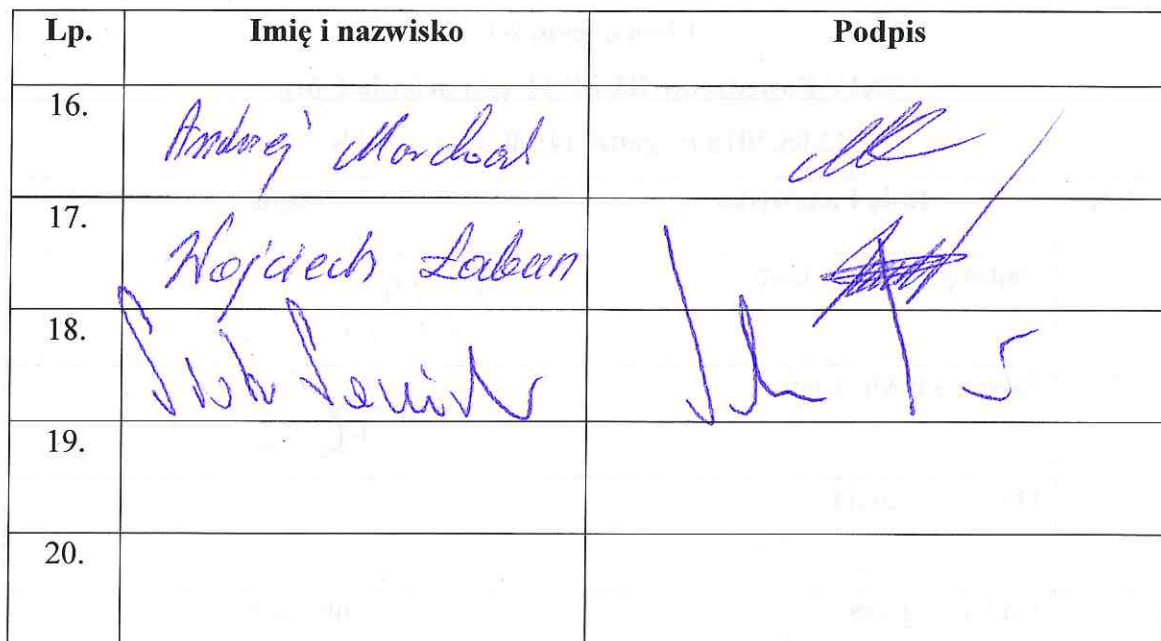 Lp. Imię i nazwisko Podpis
16. Andrzej Marchoł
17. Wojciech Łaban
18. Piotr
19.
20.